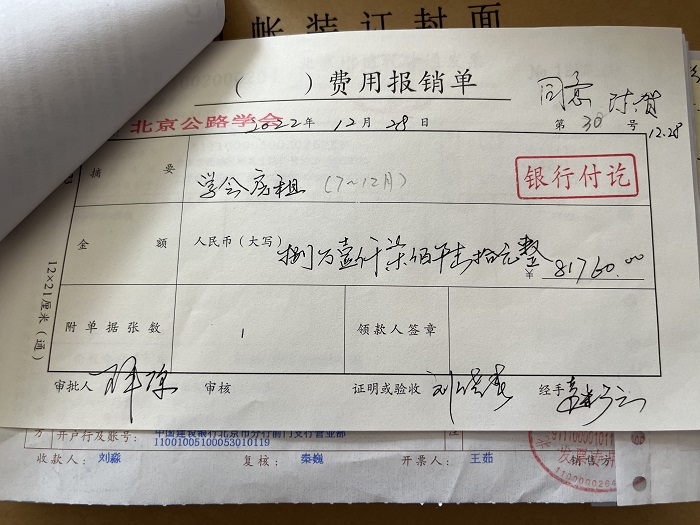 帐装订封面
( ) 费用报销单
同意
北京公路学会
2022年 12月 28日
第 30 号
12.28
摘要
学会房租 (7~12月)
银行付讫
金额
人民币(大写)
捌万壹仟柒佰陆拾元整
¥ 81760.00
附单据张数
1
领款人签章
审批人
审核
证明或验收
经手
12×21厘米(通)
方
开户行及账号:
中国建设银行北京市分行前门支行营业部
11001005100053010119
收款人: 刘淼
复核: 秦巍
开票人: 王茹
销售方